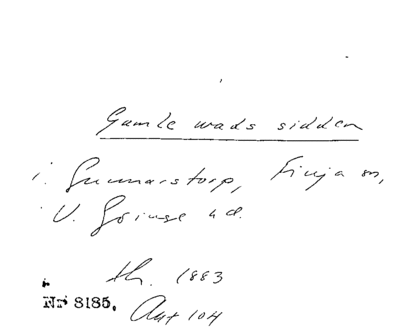 Gamle wads sidden
i. Gunnarstorp, Finja sn,
V. Göinge hd.
th. 1883
Nr 8185, Aut 104